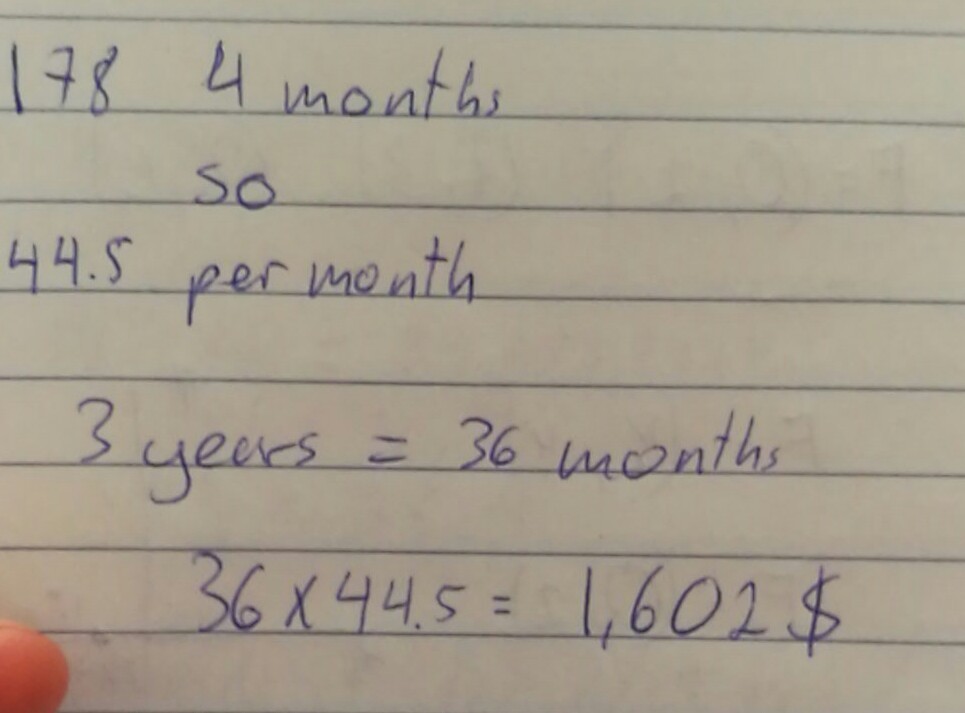 178 4 months
so
44.5 per month
3 years = 36 months
36 x 44.5 = 1,602 $